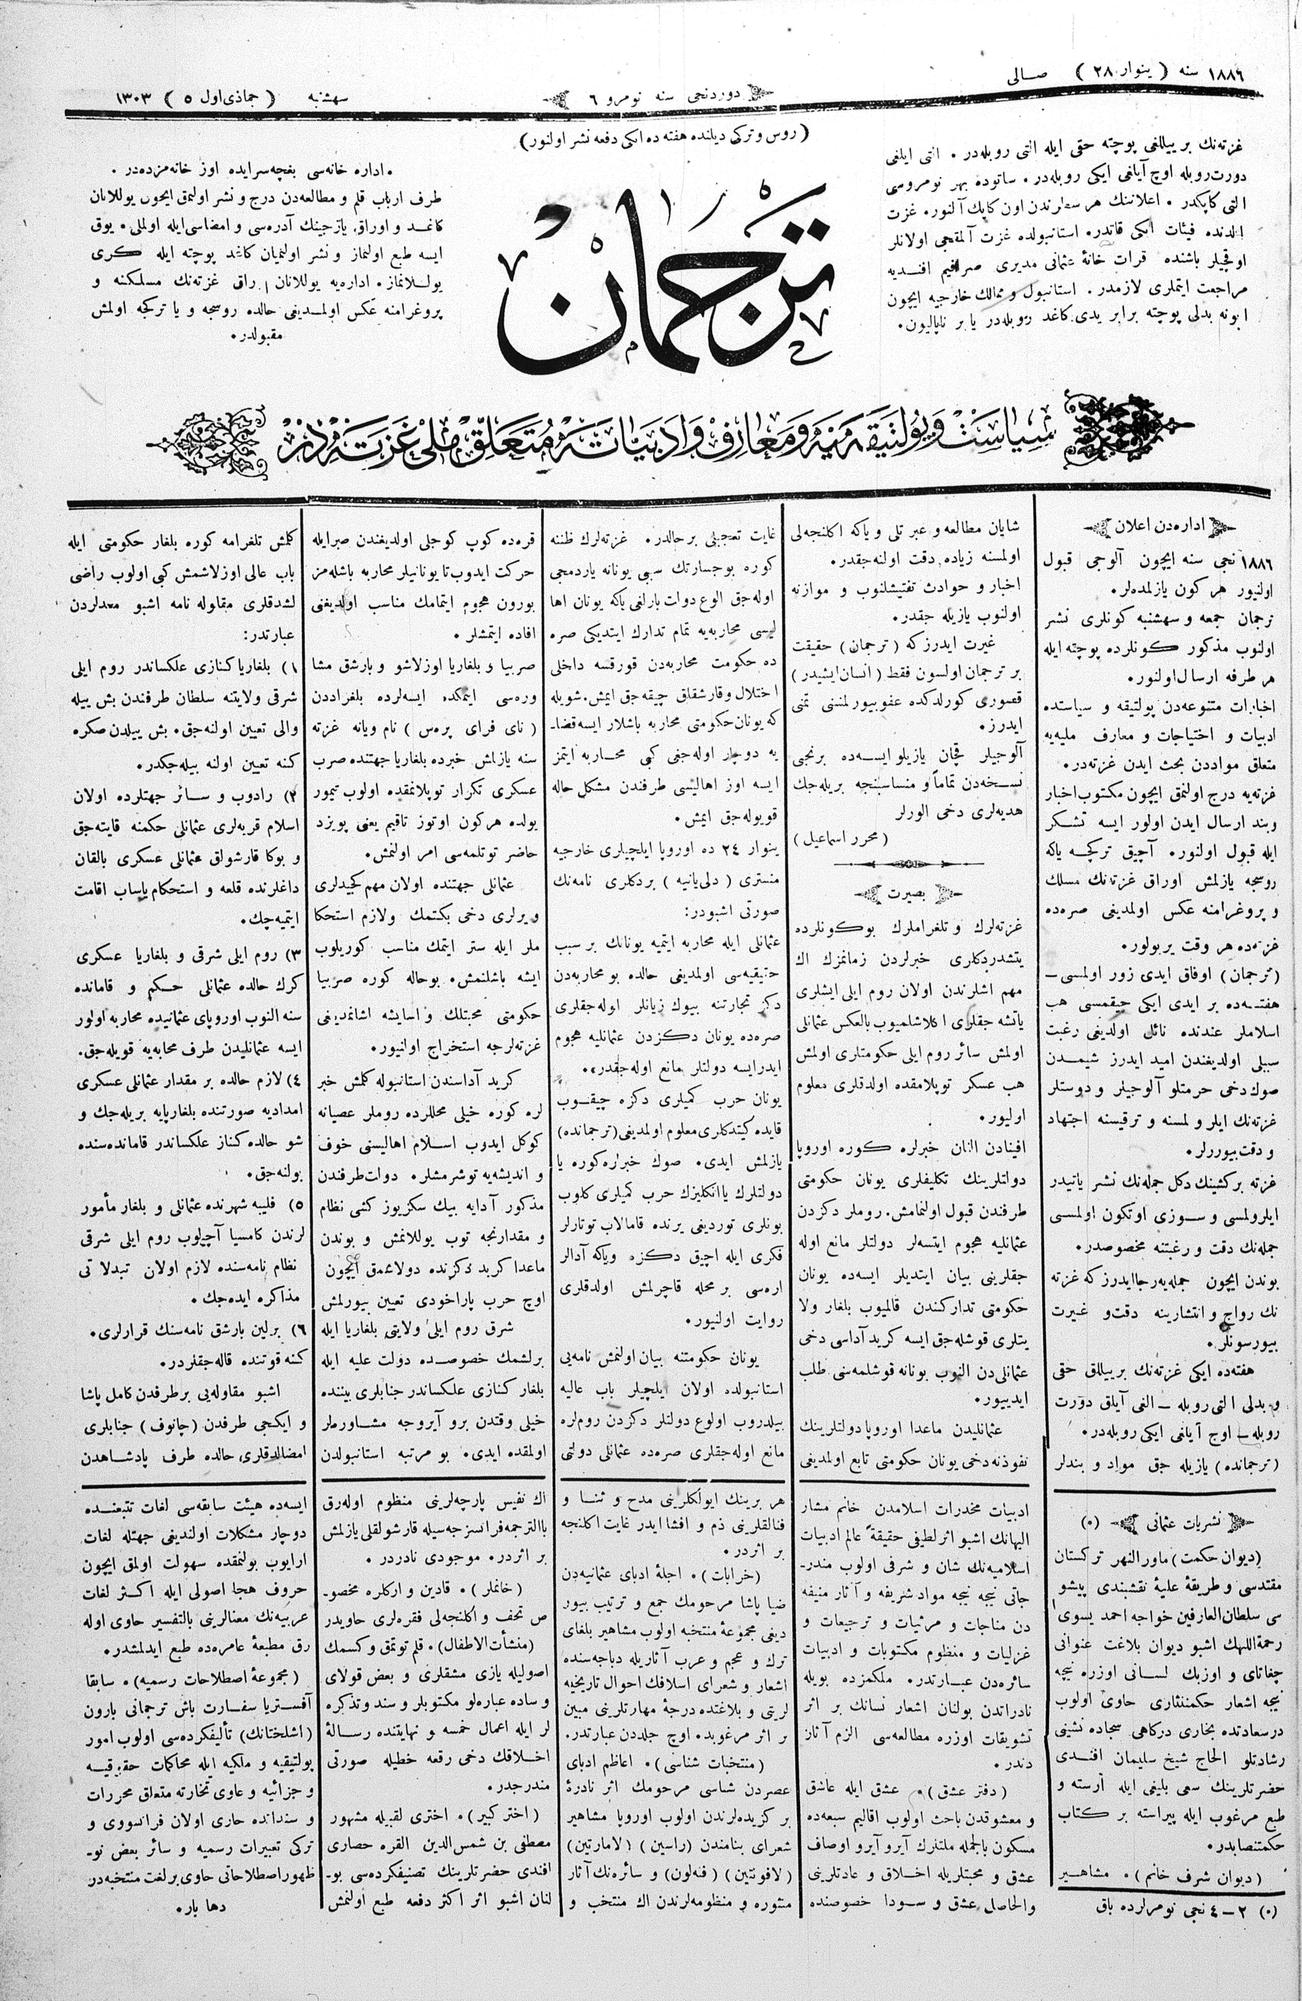 ١٨٨٦ سنه (ینوار ٢٨) صالی
دوردنجی سنه نومرو ٦
سهشنبه (جماذی اول ٥) ١٣٠٣
(روس و ترکی دیلنده هفته ده ایکی دفعه نشر اولنور)
غزته‌نك بر ییللغی پوچته حقی ایله التی روبله‌در. التی ایلغی
دورت روبله اوچ آیلغی ایکی روبله‌در. ساتوده بهر نومروسی
التی کاپکدر. اعلاننك هر سطرندن اون کاپك آلنور. غزت
الدنده فیئات ایکی قاتدر. استانبولده غزت آلمقجی اولانلر
اوقجیلر باشنده قرات خانهٔ عثمانی مدیری صرافیم افندیه
مراجعت ایتملری لازمدر. استانبول و ممالك خارجیه ایچون
ابونه بدلی پوچته برابر یدی کاغد روبله‌در یا بر ناپالیون.
ترجمان
٠ اداره خانه‌سی بغچه‌سرایده اوز خانه‌مزده‌در ٠
طرف ارباب قلم و مطالعه‌دن درج و نشر اولنمق ایچون یوللانان
کاغد و اوراق، یازجینك آدره‌سی و امضاسی ایله اولملی. یوق
ایسه طبع اولنماز و نشر اولنمیان کاغد پوچته ایله کری
یوللانماز. اداره‌یه یوللانان اوراق غزته‌نك مسلکنه و
پروغرامنه عکس اولمدیغی حالده روسجه و یا ترکجه اولمش
مقبولدر.
سیاست و پولتیقه‌یه و معارف و ادبیاته متعلق ملی غزته‌در
اداره‌دن اعلان
١٨٨٦ نجی سنه ایچون آلوجی قبول
اولنیور هر کون یازلمده‌لر.
ترجمان جمعه و سهشنبه کونلری نشر
اولنوب مذکور کونلرده پوچته ایله
هر طرفه ارسال اولنور.
اخبارات متنوعه‌دن پولتیقه و سیاستده
ادبیات و احتیاجات و معارف ملیه‌یه
متعلق موادندن بحث ایدن غزته‌در.
غزته‌یه درج اولنمق ایچون مکتوب اخبار
وبند ارسال ایدن اولور ایسه تشکر
ایله قبول اولنور. آچیق ترکچه یاکه
روسجه یازلمش اوراق غزته‌نك مسلك
و پروغرامنه عکس اولمدیغی صره‌ده
غزته‌ده هر وقت یر بولور.
(ترجمان) اوفاق ایدی زور اولمسی —
هفته‌ده بر ایدی ایکی چیقمسی هب
اسلاملر عندنده نائل اولدیغی رغبت
سبیلی اولدیغندن امید ایدرز شیمدن
صوك دخی حرمتلو آلوجیلر و دوستلر
غزته‌نك ایلرولمسنه و ترقیسنه اجتهاد
و دقت بیوررلر.
غزته بر کشینك دکل جمله‌نك نشر یاتیدر
ایلرولمسی و سوزی اوتکون اولمسی
جمله‌نك دقت و رغبتنه مخصوصدر.
بوندن ایچون جمله‌یه رجا ایدرز که غزته
نك رواج و انتشارینه دقت و غیرت
بیورسونلر.
هفته‌ده ایکی غزته‌نك بر ییللق حقی
و بدلی التی روبله — التی آیلق دورت
روبله — اوچ آیلغی ایکی روبله‌در.
(ترجمانده) یازیله جق مواد و بندلر
شایان مطالعه و عبرتلی و یاکه اکلنجه‌لی
اولمسنه زیاده دقت اولنه‌جقدر.
اخبار و حوادث تفتیشلنوب و موازنه
اولنوب یازیله جقدر.
غیرت ایدرز که (ترجمان) حقیقت
بر ترجمان اولسون فقط (انسان ایشیدر)
قصوری کورلدکده عفو بیورلمسنی تمنی
ایدرز.
آلوجیلر قچان یازیلو ایسه‌ده برنجی
نسخه‌دن تماماً و مناسبنجه بریله‌جك
هدیه‌لری دخی الورلر
(محرر اسماعیل)
بصیرت
غزته‌لرك و تلغراملرك بو کونلرده
یتشدردکلری خبرلردن زمانمزك اك
مهم اشلرندن اولان روم ایلی ایشلری
یاتشه جقلری اکلاشلمیوب بالعکس عثمانلی
اولمش سائر روم ایلی حکومتلری اولمش
هب عسکر توپلامقده اولدقلری معلوم
اولیور.
افینادن النان خبرلره کوره اوروپا
دولتلرینك تکلیفلری یونان حکومتی
طرفندن قبول اولنمامش. روملر دکزدن
عثمانلیه هجوم ایتسه‌لر دولتلر مانع اوله
جقلرینی بیان ایتدیلر ایسه‌ده یونان
حکومتی تدارکندن قالمیوب بلغار ولا
یتلری قوشله‌جق ایسه کرید آداسی دخی
عثمانلی‌دن النوب یونانه قوشلمه‌سنی طلب
ایدییور.
عثمانلیدن ماعدا اوروپا دولتلرینك
نفوذنه دخی یونان حکومتی تابع اولمدیغی
غایت تعجبلی بر حالدر. غزته‌لرك ظننه
کوره بو جسارتك سببی یونانه یاردمجی
اوله‌جق الوع دولت بارلغی یاکه یونان اها
لیسی محاربه‌یه تمام تدارك ایتدیکی صره
ده حکومت محاربه‌دن قورقسه داخلی
اختلال و قارشقلق چیقه‌جق ایمش. شویله
که یونان حکومتی محاربه باشلار ایسه قضا
یه دوچار اوله‌جغی کبی محاربه ایتمز
ایسه اوز اهالیسی طرفندن مشکل حاله
قویوله‌جق ایمش.
ینوار ٢٤ ده اوروپا ایلچیلری خارجیه
منستری (دلی‌یانیه) بردکلری نامه‌نك
صورتی اشبودر:
عثمانلی ایله محاربه ایتمیه یونانك بر سبب
حقیقیه‌سی اولمدیغی حالده بو محاربه‌دن
دکز تجارتنه بیوك زیانلر اوله‌جقلری
صره‌ده یونان دکزدن عثمانلیه هجوم
ایدرایسه دولتلر مانع اوله‌جقدر.
یونان حرب کمیلری دکزه چیقوب
قایده کیتدکلری معلوم اولمدیغی (ترجمانده)
یازلمش ایدی. صوك خبرلره کوره یا
دولتلرك یا انکلیزك حرب کمیلری کلوب
بونلری توردیغی یرنده قامالاب توتارلر
فکری ایله آچیق دکزه ویاکه آدالر
اره‌سی بر محله قاچرلمش اولدقلری
روایت اولنیور.
یونان حکومتنه بیان اولنمش نامه‌یی
استانبولده اولان ایلچیلر باب عالیه
بیلدروب اولوغ دولتلر دکزدن روملره
مانع اوله‌جقلری صره‌ده عثمانلی دولتی
قره‌ده کوپ کوجلی اولدیغندن صبر ایله
حرکت ایدوب تا یونانیلر محاربه باشله‌مز
بورون هجوم ایتمامك مناسب اولدیغنی
افاده ایتمشلر.
صربیا و بلغاریا اوزلاشو و بارشق مشا
وره‌سی ایتمکده ایسه‌لرده بلغراددن
(نای فرای پره‌س) نام ویانه غزته
سنه یازلمش خبرده بلغاریا جهتنده صرب
عسکری تکرار توپلانمقده اولوب تیمور
یولده هر کون اوتوز تاقیم یعنی پویزد
حاضر توتلمه‌سی امر اولنمش.
عثمانلی جهتنده اولان مهم کچیدلری
و یرلری دخی بکتمك ولازم استحکا
ملر ایله ستر ایتمك مناسب کوریلوب
ایشه باشلنمش. بو حاله کوره صربیا
حکومتی محبتلك و اسایشه اشانمدیغی
غزته‌لرجه استخراج اولنیور.
کرید آداسندن استانبوله کلمش خبر
لره کوره خیلی محللرده روملر عصیانه
کوکل ایدوب اسلام اهالیسنی خوف
و اندیشه‌یه توشرمشلر. دولت طرفندن
مذکور آدایه بیك سکزیوز کشی نظام
و مقدارنجه توپ یوللانمش و بوندن
ماعدا کرید دکزنده دولاشمق ایچون
اوچ حرب پاراخودی تعیین بیورلمش
شرق روم ایلی ولایتی بلغاریا ایله
برلشمك خصوصده دولت علیه ایله
بلغار کنازی علکساندر جنابلری بیننده
خیلی وقتدن برو آیروجه مشاورلر
اولمقده ایدی. بو مرتبه استانبولدن
کلمش تلغرامه کوره بلغار حکومتی ایله
باب عالی اوزلاشمش کبی اولوب راضی
لشدقلری مقاوله نامه اشبو معدلردن
عبارتدر:
١) بلغاریا کنازی علکساندر روم ایلی
شرقی ولایتنه سلطان طرفندن بش ییله
والی تعیین اولنه‌جق. بش ییلدن صکره
کنه تعیین اولنه بیله‌جکدر.
٢) رادوب و سائر جهتلرده اولان
اسلام قریه‌لری عثمانلی حکمنه قایته‌جق
و بوکا قارشولق عثمانلی عسکری بالقان
داغلرنده قلعه و استحکام یاساب اقامت
ایتمیه‌جك.
٣) روم ایلی شرقی و بلغاریا عسکری
کرك حالده عثمانلی حکم و قامانده
سنه النوب اوروپای عثمانیده محاربه اولور
ایسه عثمانلیدن طرف محابه‌یه قویله‌جق.
٤) لازم حالده بر مقدار عثمانلی عسکری
امدادیه صورتنده بلغاریایه بریله‌جك و
شو حالده کناز علکساندر قامانده‌سنده
بولنه‌جق.
٥) فلیبه شهرنده عثمانلی و بلغار مأمور
لرندن کامسیا آچیلوب روم ایلی شرقی
نظام نامه‌سنده لازم اولان تبدلاتی
مذاکره ایده‌جك.
٦) برلین بارشق نامه‌سنك قرارلری
کنه قوتنده قاله‌جقلردر.
اشبو مقاوله‌یی بر طرفدن کامل پاشا
و ایکجی طرفدن (چانوف) جنابلری
امضالدقلری حالده طرف پادشاهدن
نشریات عثمانی (٥)
(دیوان حکمت) ماورالنهر ترکستان
مقتدسی و طریقهٔ علیهٔ نقشبندی پیشو
سی سلطان العارفین خواجه احمد یسوی
رحمة اللهك اشبو دیوان بلاغت عنوانی
چغاتای و اوزبك لسانی اوزره نیجه
نیجه اشعار حکمتنثاری حاوی اولوب
درسعادتده بخاری درکاهی سجاده نشینی
رشادتلو الحاج شیخ سلیمان افندی
حضرتلرینك سعی بلیغی ایله آرسته و
طبع مرغوب ایله پیراسته بر کتاب
حکمتنصابدر.
(دیوان شرف خانم). مشاهیر
(٥) ٢—٤ نجی نومرلرده باق
ادبیات مخدرات اسلامدن خانم مشار
الیهانك اشبو اثر لطیفی حقیقةً عالم ادبیات
اسلامیه‌نك شان و شرفی اولوب مندر-
جاتی نیجه نیجه مواد شریفه و آثار منیفه
دن مناجات و مرثیات و ترجیعات و
غزلیات و منظوم مکتوبات و ادبیات
سائره‌دن عبارتدر. ملکمزده بویله
نادراتدن بولنان اشعار نسانك بر اثر
تشویقات اوزره مطالعه‌سی الزم آثار
دندر.
(دفتر عشق). عشق ایله عاشق
و معشوقدن باحث اولوب اقالیم سبعه‌ده
مسکون بالجمله ملتلرك آیرو آیرو اوصاف
عشق و محبتلریله اخلاق و عادتلرینی
والحاصل عشق و سودا خصوصنده
هر برینك ایولکلرینی مدح و ثنا و
فنالقلرینی ذم و افشا ایدر غایت اکلنجه
بر اثردر.
(خرابات). اجلهٔ ادبای عثمانیه‌دن
ضیا پاشا مرحومك جمع و ترتیب بیور
دیغی مجموعهٔ منتخبه اولوب مشاهیر بلغای
ترك و عجم و عرب آثاریله دباجه‌سنده
اشعار و شعرای اسلافك احوال تاریخیه
لرینی و بلاغتده درجهٔ مهارتلرینی مبین
بر اثر مرغوبده. اوچ جلددن عبارتدر.
(منتخبات شناسی). اعاظم ادبای
عصردن شناسی مرحومك اثر نادرهٔ
بر کزیده‌لرندن اولوب اوروپا مشاهیر
شعرای بنامندن (راسین) (لامارتین)
(لافونتین) (فنه‌لون) و سائره‌نك آثار
منثوره و منظومه‌لرندن اك منتخب و
اك نفیس پارچه‌لرینی منظوم اوله‌رق
باالترجمه فرانسزجه‌سیله قارشولقلی یازلمش
بر اثردر. موجودی نادردر.
(خانملر). قادین و ارکلره مخصو-
ص تحف و اکلنجه‌لی فقره‌لری حاویدر
(منشأت الاطفال). قلم توتمق و کسمك
اصولیله یازی مشقلری و بعض قولای
و ساده عباره‌لو مکتوبلر و سند و تذکره
لر ایله اعمال خمسه و نهایتنده رسالهٔ
اخلاقك دخی رقعه خطیله صورتی
مندرجدر.
(اختر کبیر). اختری لقبیله مشهور
مصطفی بن شمس‌الدین القره حصاری
افندی حضرتلرینك تصنیفکرده‌سی بو-
لنان اشبو اثر اکثر دفعه طبع اولنمش
ایسه‌ده هیئت سابقه‌سی لغات تتبعنده
دوچار مشکلات اولندیغی جهتله لغات
آرایوب بولنمقده سهولت اولمق ایچون
حروف هجا اصولی ایله اکثر لغات
عربیه‌نك معنالرینی بالتفسیر حاوی اوله
رق مطبعهٔ عامره‌ده طبع ایدلمشدر.
(مجموعهٔ اصطلاحات رسمیه). سابقا
آفستریا سفارت باش ترجمانی بارون
(اشلختانك) تألیفکرده‌سی اولوب امور
پولتیقیه و ملکیه ایله محاکمات حقوقیه
و جزائیه و عاوی تجارته متعلق محررات
و سنداته حاری اولان فرانسوی و
ترکی تعبیرات رسمیه و سائر بعض نو-
ظهور اصطلاحاتی حاوی بر لغت منتخبه‌در
دها بار.